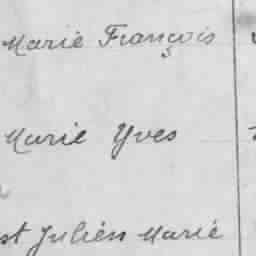 Marie François
Marie Yves
st Julien Marie